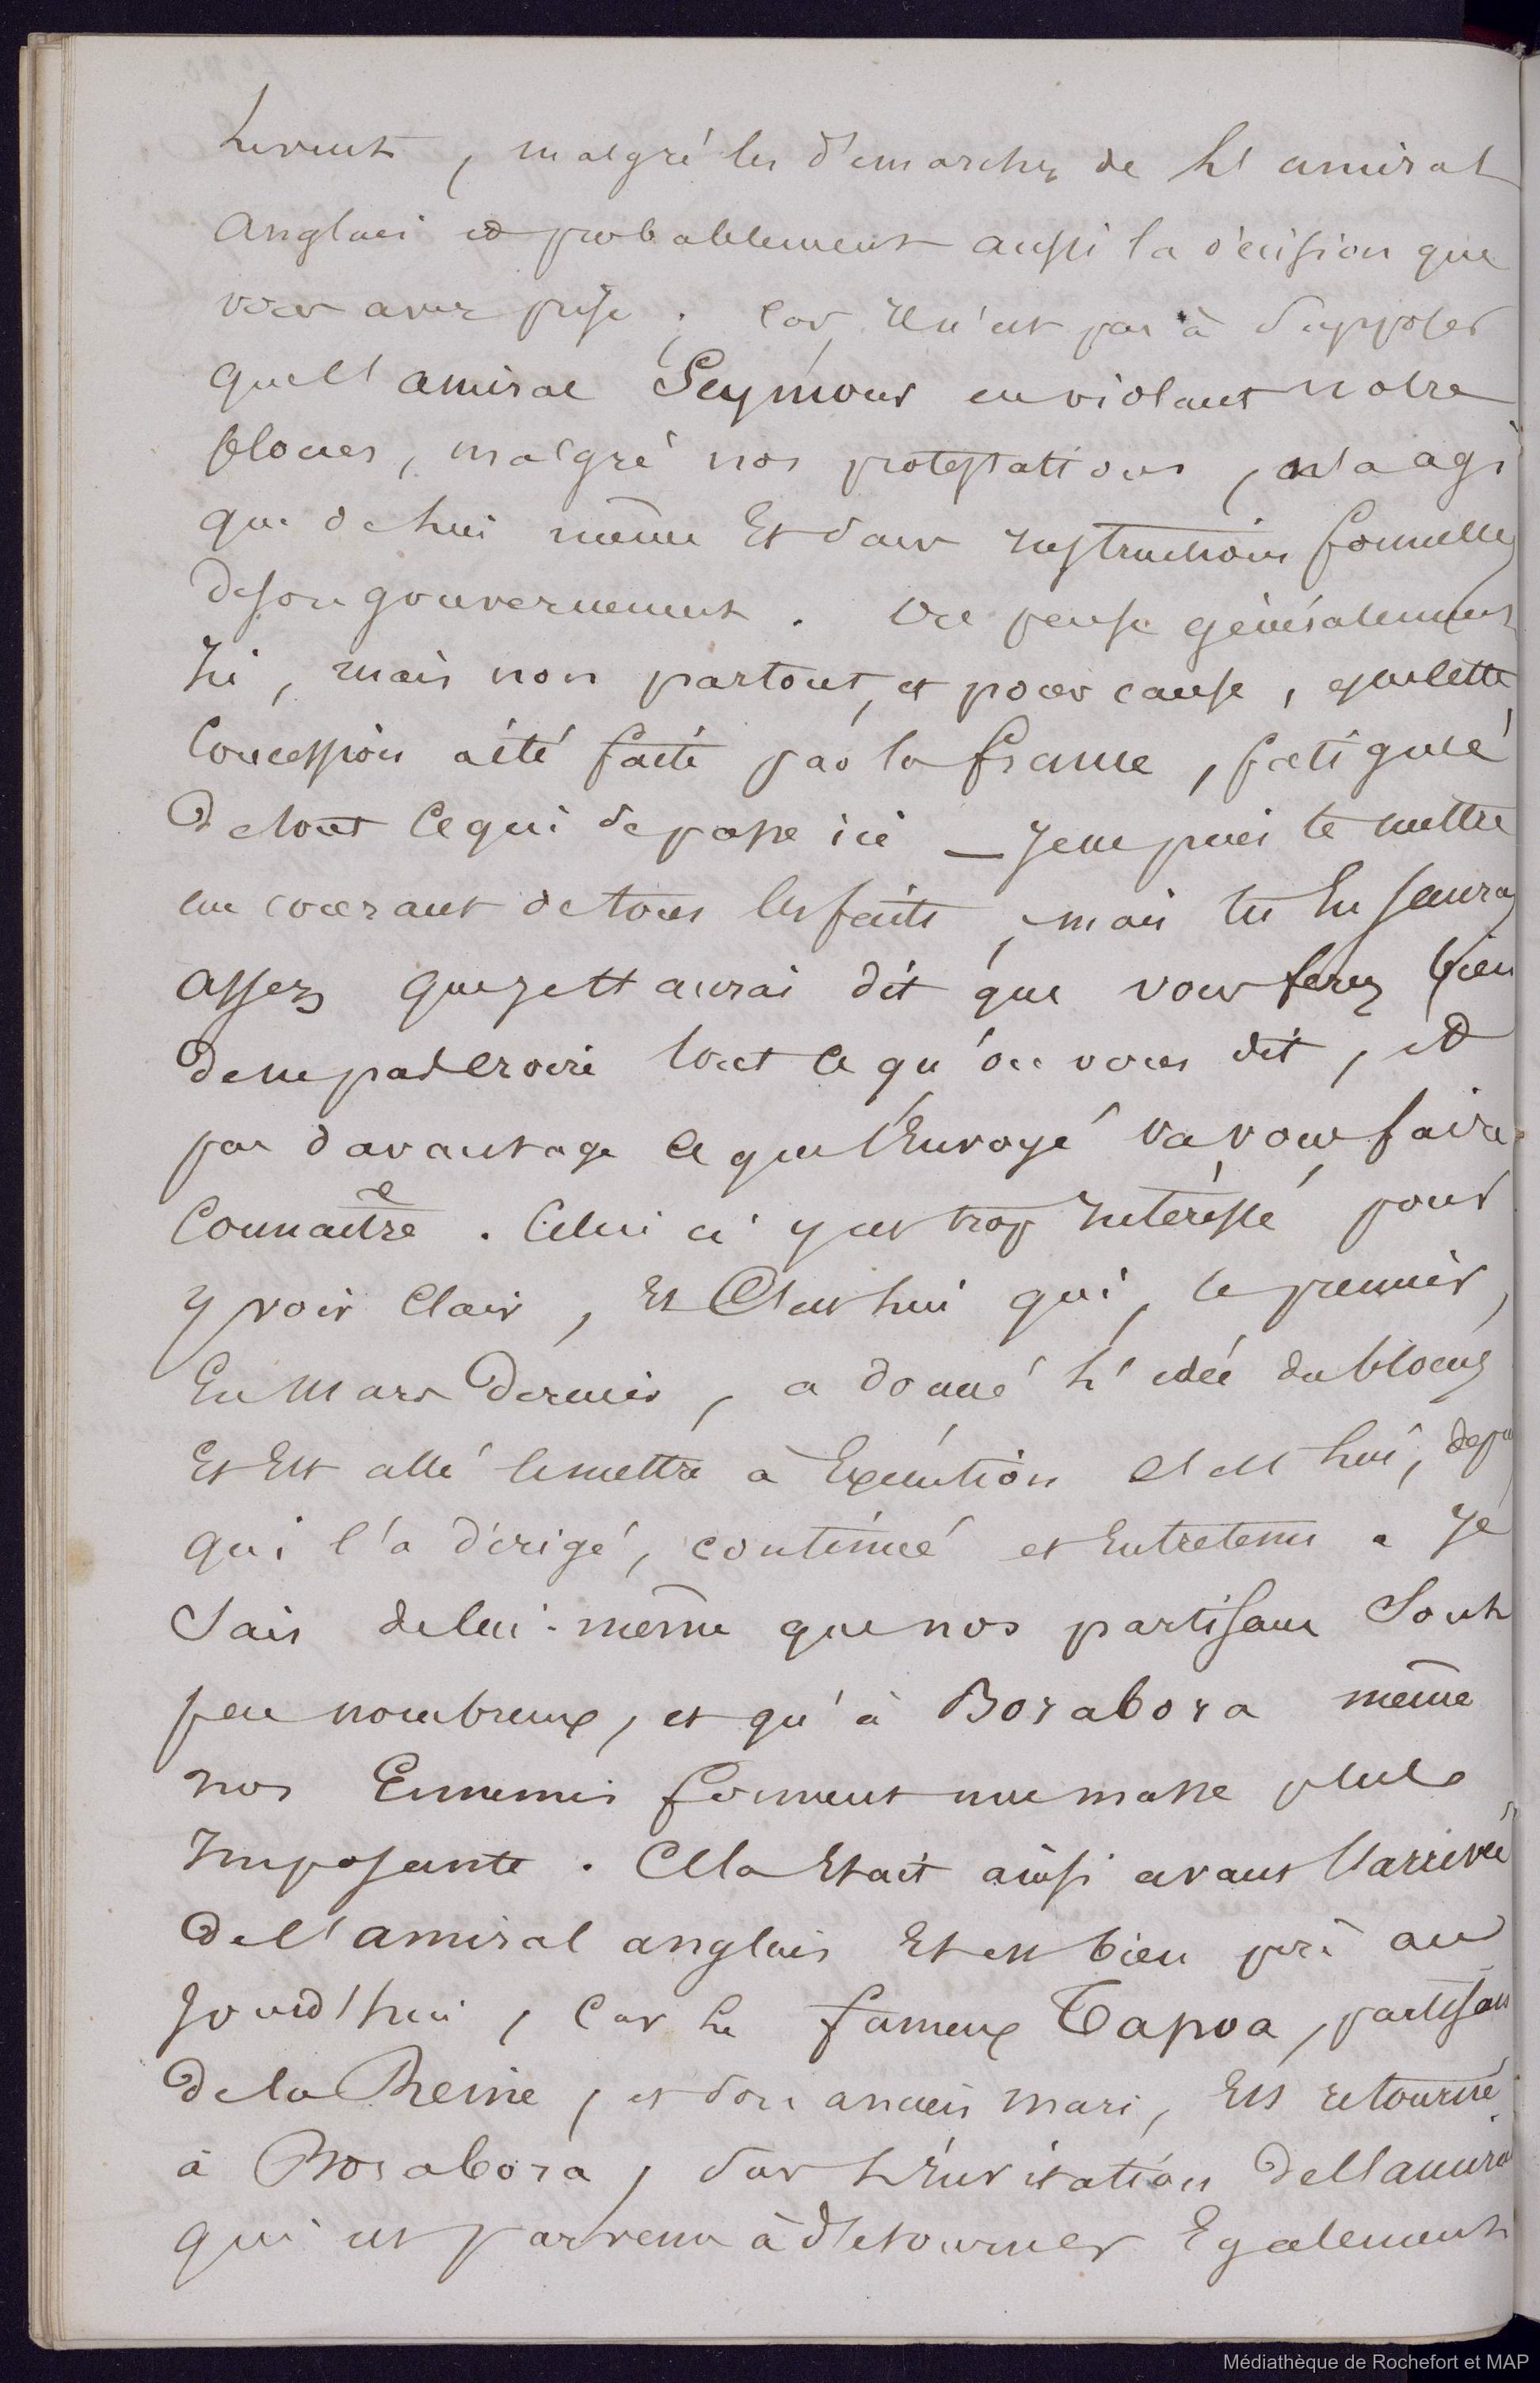 , malgré les d'emarches de L'amiral
anglais et probablement aussi la décision que
vous avez prise ; car, Il n'est pas à Supposer
que l'amiral Seymour en violant notre
blocus, malgré nos protestations, n'a agi
que de lui même Et sans Instructions formelles
de son gouvernement. On pense généralement
Ici, mais non partout, et pour cause, que cette
Concession a été faite par la france, fatigué
De tout Ce qui se passe ici — Je ne puis te mettre
au courant de tous les faits, mais tu En sauras
assez quand je t'aurai dit que vous ferez bien
De ne pas Croire tout ce qu'on vous dit, et
pas davantage ce que l'Envoyé va vous faire
Connaitre. Celui ci y est trop Intéressé pour
y voir Clair, Et C'est lui qui, le premier,
En Mars Dernier, a donné L'idée du blocus
Et Est allé le mettre à Exécution et c'est lui,
qui l'a dirigé, continué et Entretenu. Je
Sais de lui-même que nos partisans Sont
peu nombreux, et qu'à Borabora même
nos Ennemis forment une masse plus
Imposante. Cela Etait ainsi avant l'arrivée
De l'amiral anglais Et est bien pré au
Jourd'hui, Car Le fameux Tapoa, partisan
De la Reine, et son ancien mari, Est retourné
à Borabora, sur L'Invitation De l'amiral
qui est parvenu à détourner Egalement
Médiathèque de Rochefort et MAP